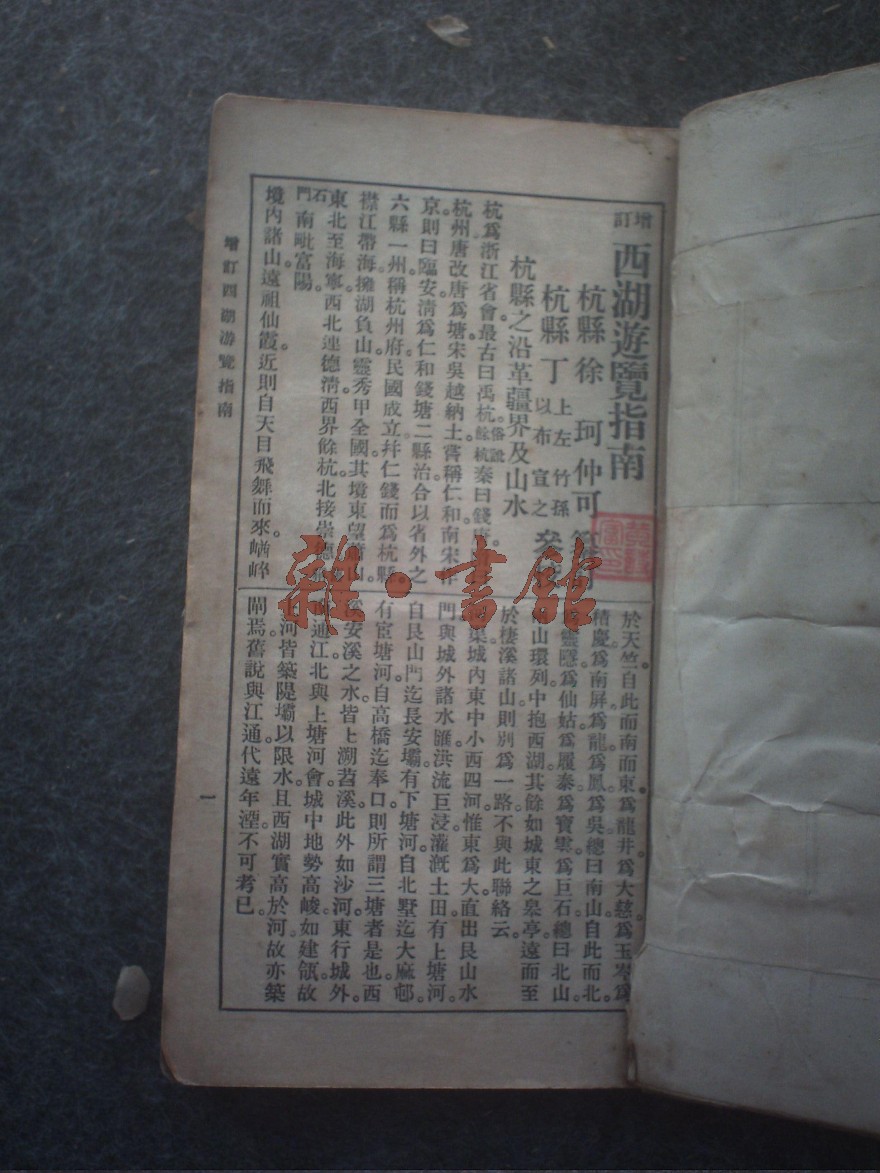 增訂西湖遊覽指南
杭縣徐珂仲可
杭縣丁上左竹孫以布宣之
杭縣之沿革疆界及山水
杭爲浙江省會。最古曰禹杭。俗譌餘杭秦曰錢
杭州。唐改唐爲塘。宋吳越納土。嘗稱仁和。南宋
京。則曰臨安。淸爲仁和錢塘二縣治。合以省外之
六縣一州。稱杭州府。民國成立。幷仁錢而爲杭縣。
襟江帶海。擁湖負山。靈秀甲全國。其境東望蕭山。
東北至海寧。西北連德淸。西界餘杭。北接崇德
石門南毗富陽。
境內諸山。遠祖仙霞。近則自天目飛舞而來。崷崪
於天竺。自此而南而東。爲龍井。爲大慈。爲玉岑。爲
積慶。爲南屏。爲龍。爲鳳。爲吳。總曰南山。自此而北。
爲靈隱。爲仙姑。爲履泰。爲寶雲。爲巨石。總曰北山。
山環列。中抱西湖。其餘如城東之皋亭。遠而至
於棲溪諸山。則別爲一路。不與此聯絡云。
渠城內東中小西四河。惟東爲大。直出艮山水
門。與城外諸水匯。洪流巨浸。灌漑土田。有上塘河。
自艮山門迄長安壩。有下塘河。自北墅迄大麻邨。
有宦塘河。自高橋迄奉口。則所謂三塘者是也。西
溪安溪之水。皆上溯苕溪。此外如沙河。東行城外。
通江。北與上塘河會。城中地勢高峻如建瓴。故
河皆築隄壩以限水。且西湖實高於河。故亦築
閘焉。舊說與江通。代遠年湮。不可考已。
增訂西湖游覽指南
一
雜·書館